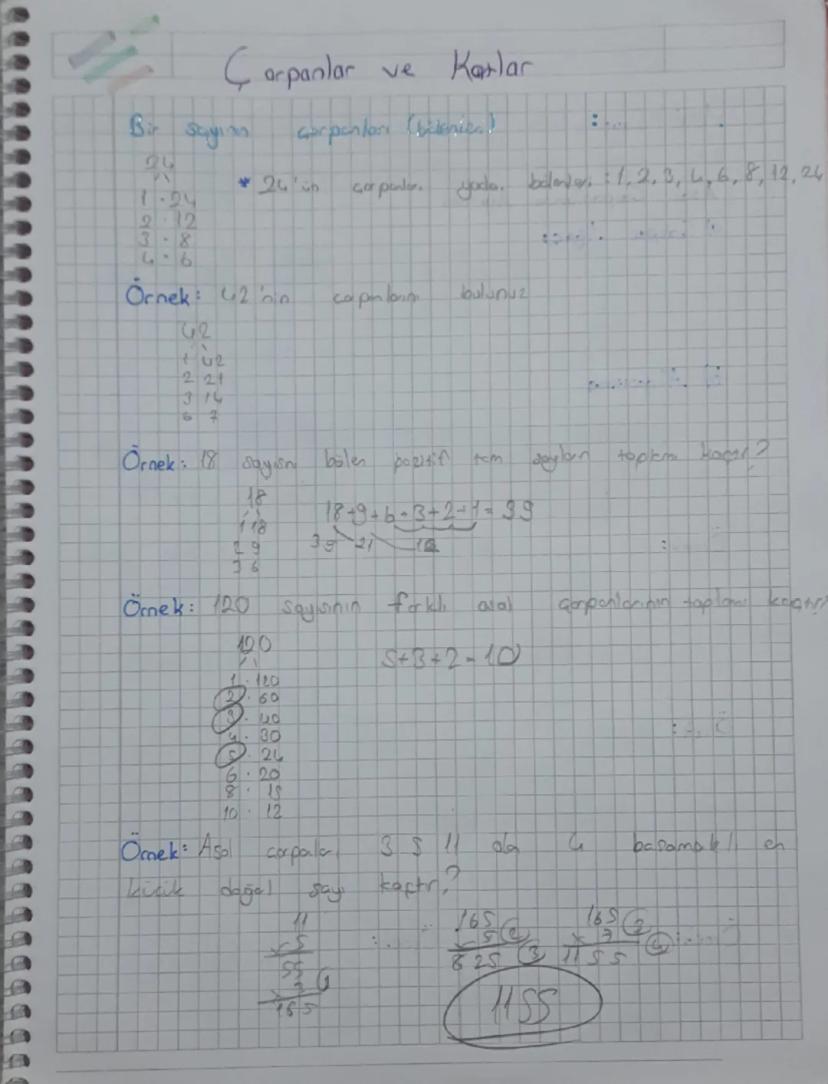 Çarpanlar ve Katlar
Bir sayının çarpanları (bölenleri)
24
* 24'ün çarpanları yada bölenleri : 1, 2, 3, 4, 6, 8, 12, 24
1 . 24
2 . 12
3 . 8
4 . 6
Örnek: 42'nin çarpanlarını bulunuz
42
1 42
2 21
3 14
6 7
Örnek: 18 sayısını bölen pozitif tam sayıların toplamı kaçtır?
18
18+9+6+3+2+1=39
1 18
2 9
39 21 12
3 6
Örnek: 120 sayısının farklı asal çarpanlarının toplamı kaçtır?
120
5+3+2=10
1 . 120
2 . 60
3 . 40
4 . 30
5 . 24
6 . 20
8 . 15
10 . 12
Örnek: Asal çarpaları 3 5 11 ola 4 basamaklı en
küçük doğal sayı kaçtır?
11 165 165
x 5 x 5 2 x 7 2
55 825 3 1155 4
x 3 1
165
1155